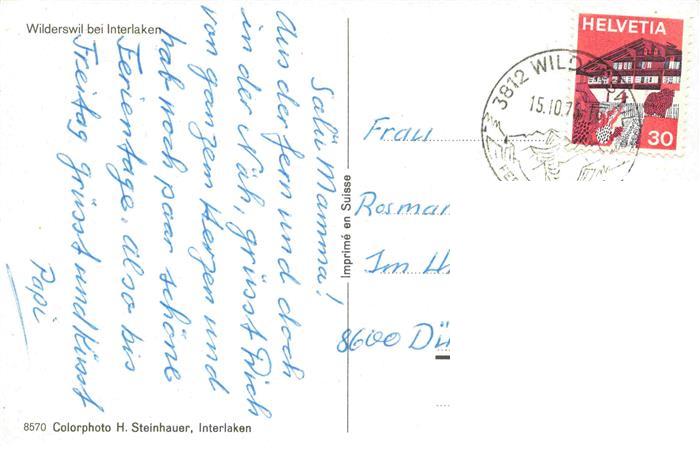 Wilderswil bei Interlaken
Salü Mamma!
Aus der fern und doch
in der Näh, grüsst Dich
von ganzem Herzen und
hab noch paar schöne
Ferientage, also bis
Freitag grüsst und küsst
Papi
8570 Colorphoto H. Steinhauer, Interlaken
Imprimé en Suisse
HELVETIA
30
3812 WILD
15.10.7
Frau
Rosmar
Im H
8600 Dü